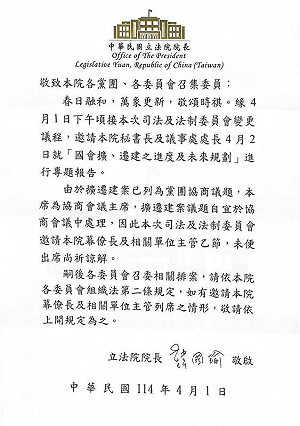 中華民國立法院院長
Office of The President
Legislative Yuan, Republic of China (Taiwan)
敬致本院各黨團、各委員會召集委員：
春日融和，萬象更新，敬頌時祺。緣4
月1日下午頃接本次司法及法制委員會變更
議程，邀請本院秘書長及議事處處長4月2
日就「國會擴、遷建之進度及未來規劃」進
行專題報告。
由於擴遷建案已列為黨團協商議題，本
席為協商會議主席，擴遷建案議題自宜於協
商會議中處理，因此本次司法及法制委員會
邀請本院幕僚長及相關單位主管乙節，未便
出席尚祈諒解。
嗣後各委員會召委相關排案，請依本院
各委員會組織法第二條規定，如有邀請本院
幕僚長及相關單位主管列席之情形，敬請依
上開規定為之。
立法院院長 韓國瑜 敬啟
中華民國114年4月1日